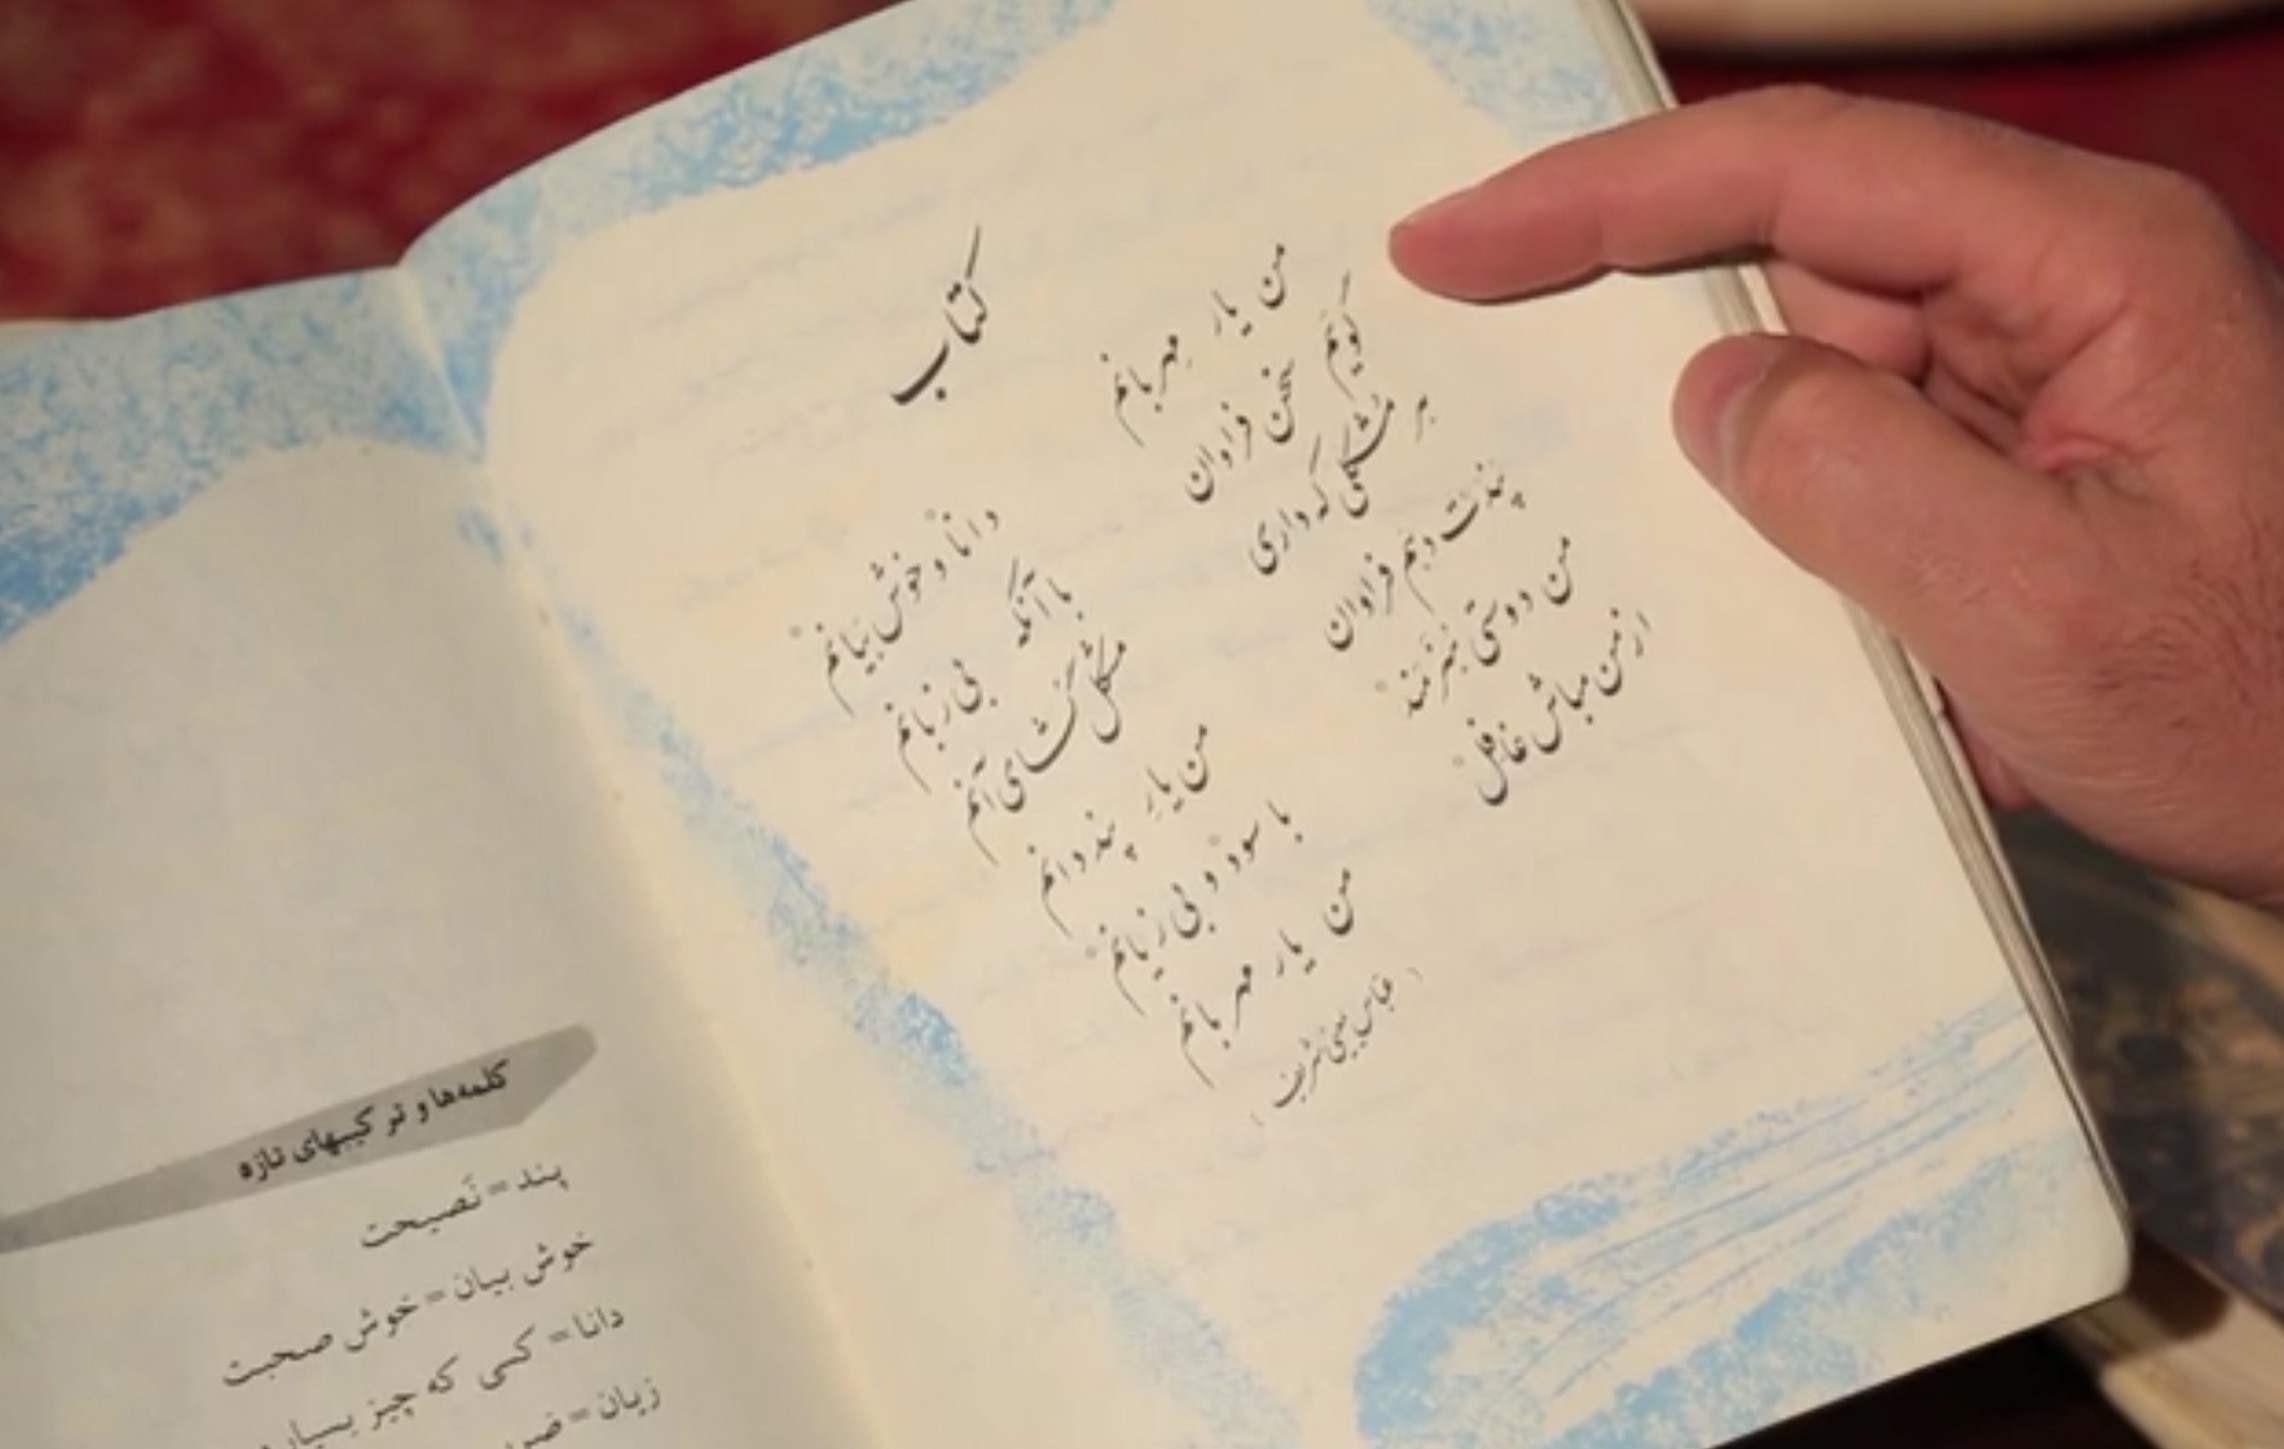 کتاب
من یار مهربانم
دانا و خوش بیانم
گویم سخن فراوان
با آنکه بی زبانم
هر مشکلی که داری
مشکل گشای آنم
پندت دهم فراوان
من یار پند دانم
من دوستی هنرمند
با سود و بی زیانم
از من مباش غافل
من یار مهربانم
(عباس یمینی شریف)
کلمه‌ها و ترکیبهای تازه
پند = نَصیحت
خوش بیان = خوش صحبت
دانا = کسی که چیز بسیار
زیان =